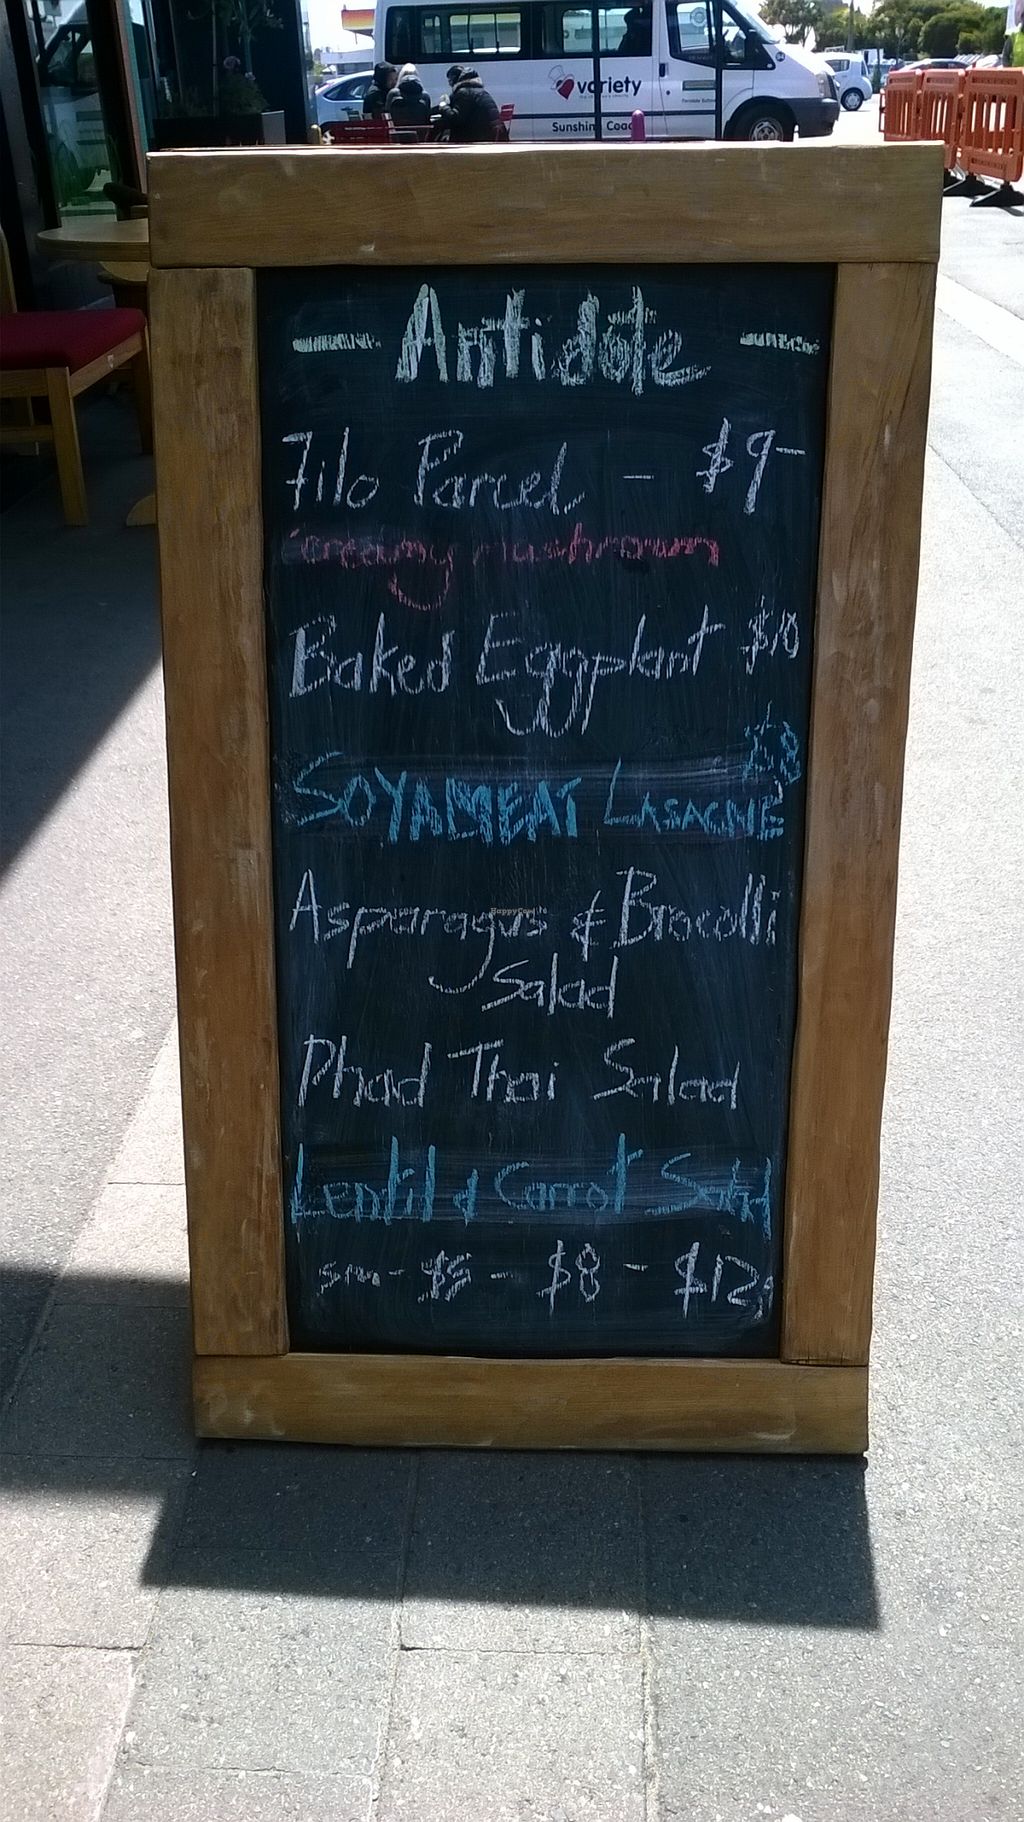 variety
Sunshine Coach
- Antidote -
Filo Parcel - $9-
creamy mushroom
Baked Eggplant $10
$8
SOYAMEAT LASAGNE
Asparagus & Brocolli
Salad
HappyCow
Phad Thai Salad
Lentil & Carrot Salad
sm - $5 - $8 - $12